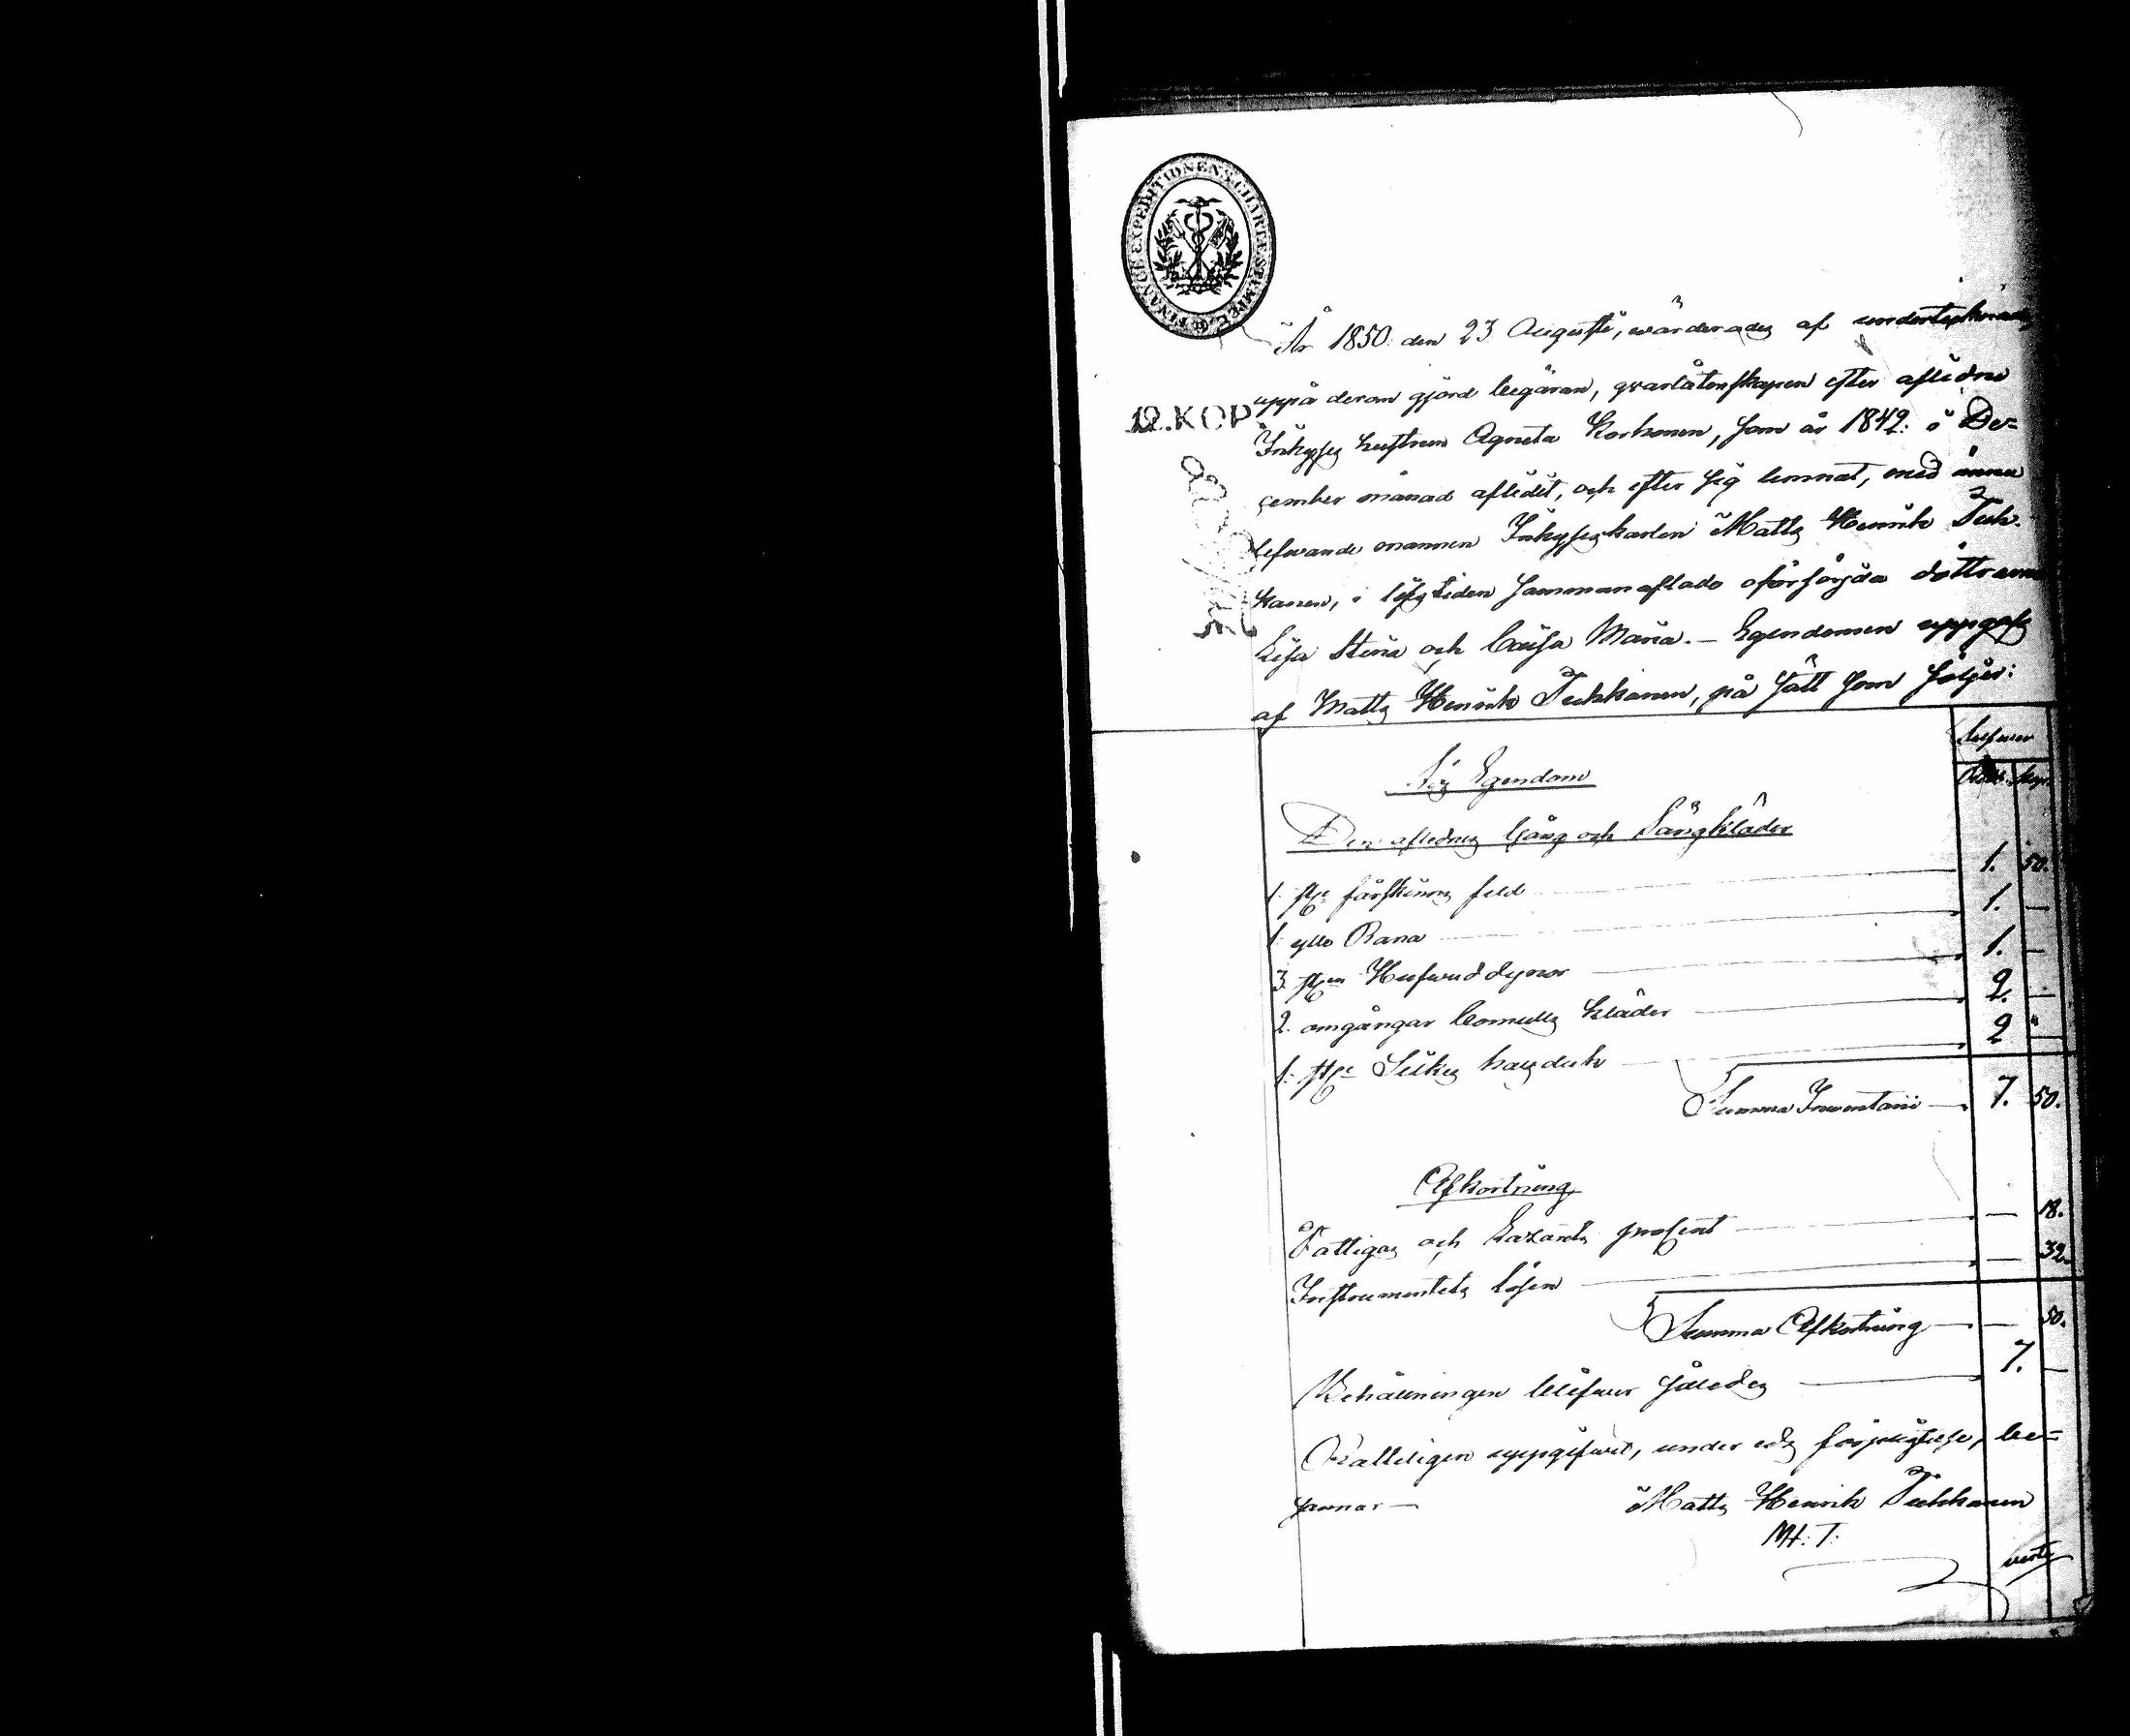 FINANCE EXPEDITIONENS CHARTÆ STÄMPEL
År 1850 den 23 Augusti, wärderades af undertecknade,
12. KOP.
uppå derom gjord begäran, qvarlåtenskapen efter aflidne
Inhyses hustrun Agneta Korhonen, som år 1842 i De-
cember månad aflidit, och efter sig lemnat, med ännu
lefwande mannen Inhyseskarlen Matts Henrik Tuk-
kanen, i lifstiden sammanaflade oförsörjda döttrarne
Lisa Stina och Caisa Maria. – Egendomen uppgafs
af Matts Henrik Tukkanen, på sätt som följer:
Silfwer
Rub. Kop.
Lös Egendom
Den aflidnes Gång och Sängkläder
1. st. fårskinns fäld 1. 50.
1. ylle Rana 1. —
3. st. Hufwuddynor 1. —
2. omgångar Bomulls kläder 2. —
1. st. Silkes halsduk 2 "
Summa Inventarii 7. 50.
Afkortning
Fattigas och Lazaretts procent — 18.
Instrumentets lösen — 32.
Summa Afkortning — 50.
Behållningen blifwer således 7. —
Rätteligen uppgifwit, under eds förpligtelse, be-
sannar —
Matts Henrik Tukkanen
M.H.T.
verte